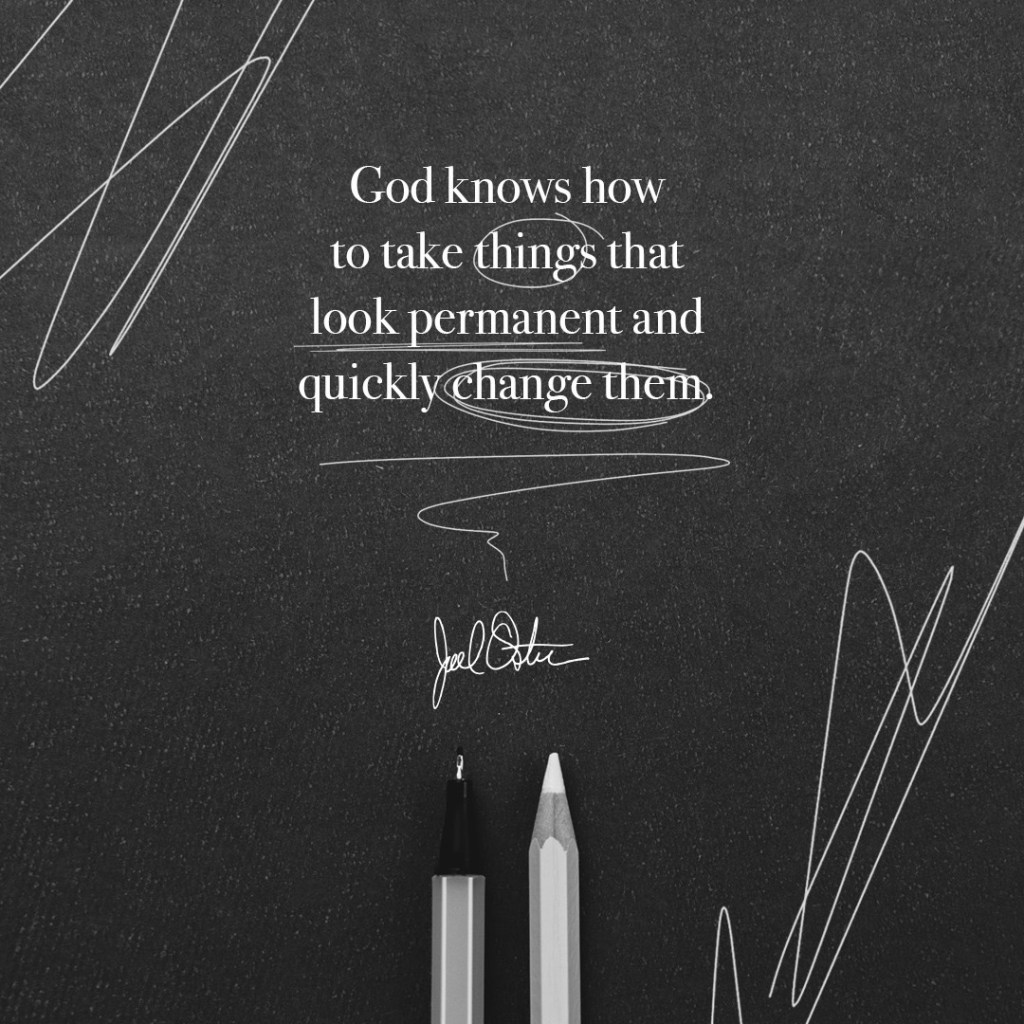 God knows how
to take things that
look permanent and
quickly change them.
Joel Osteen